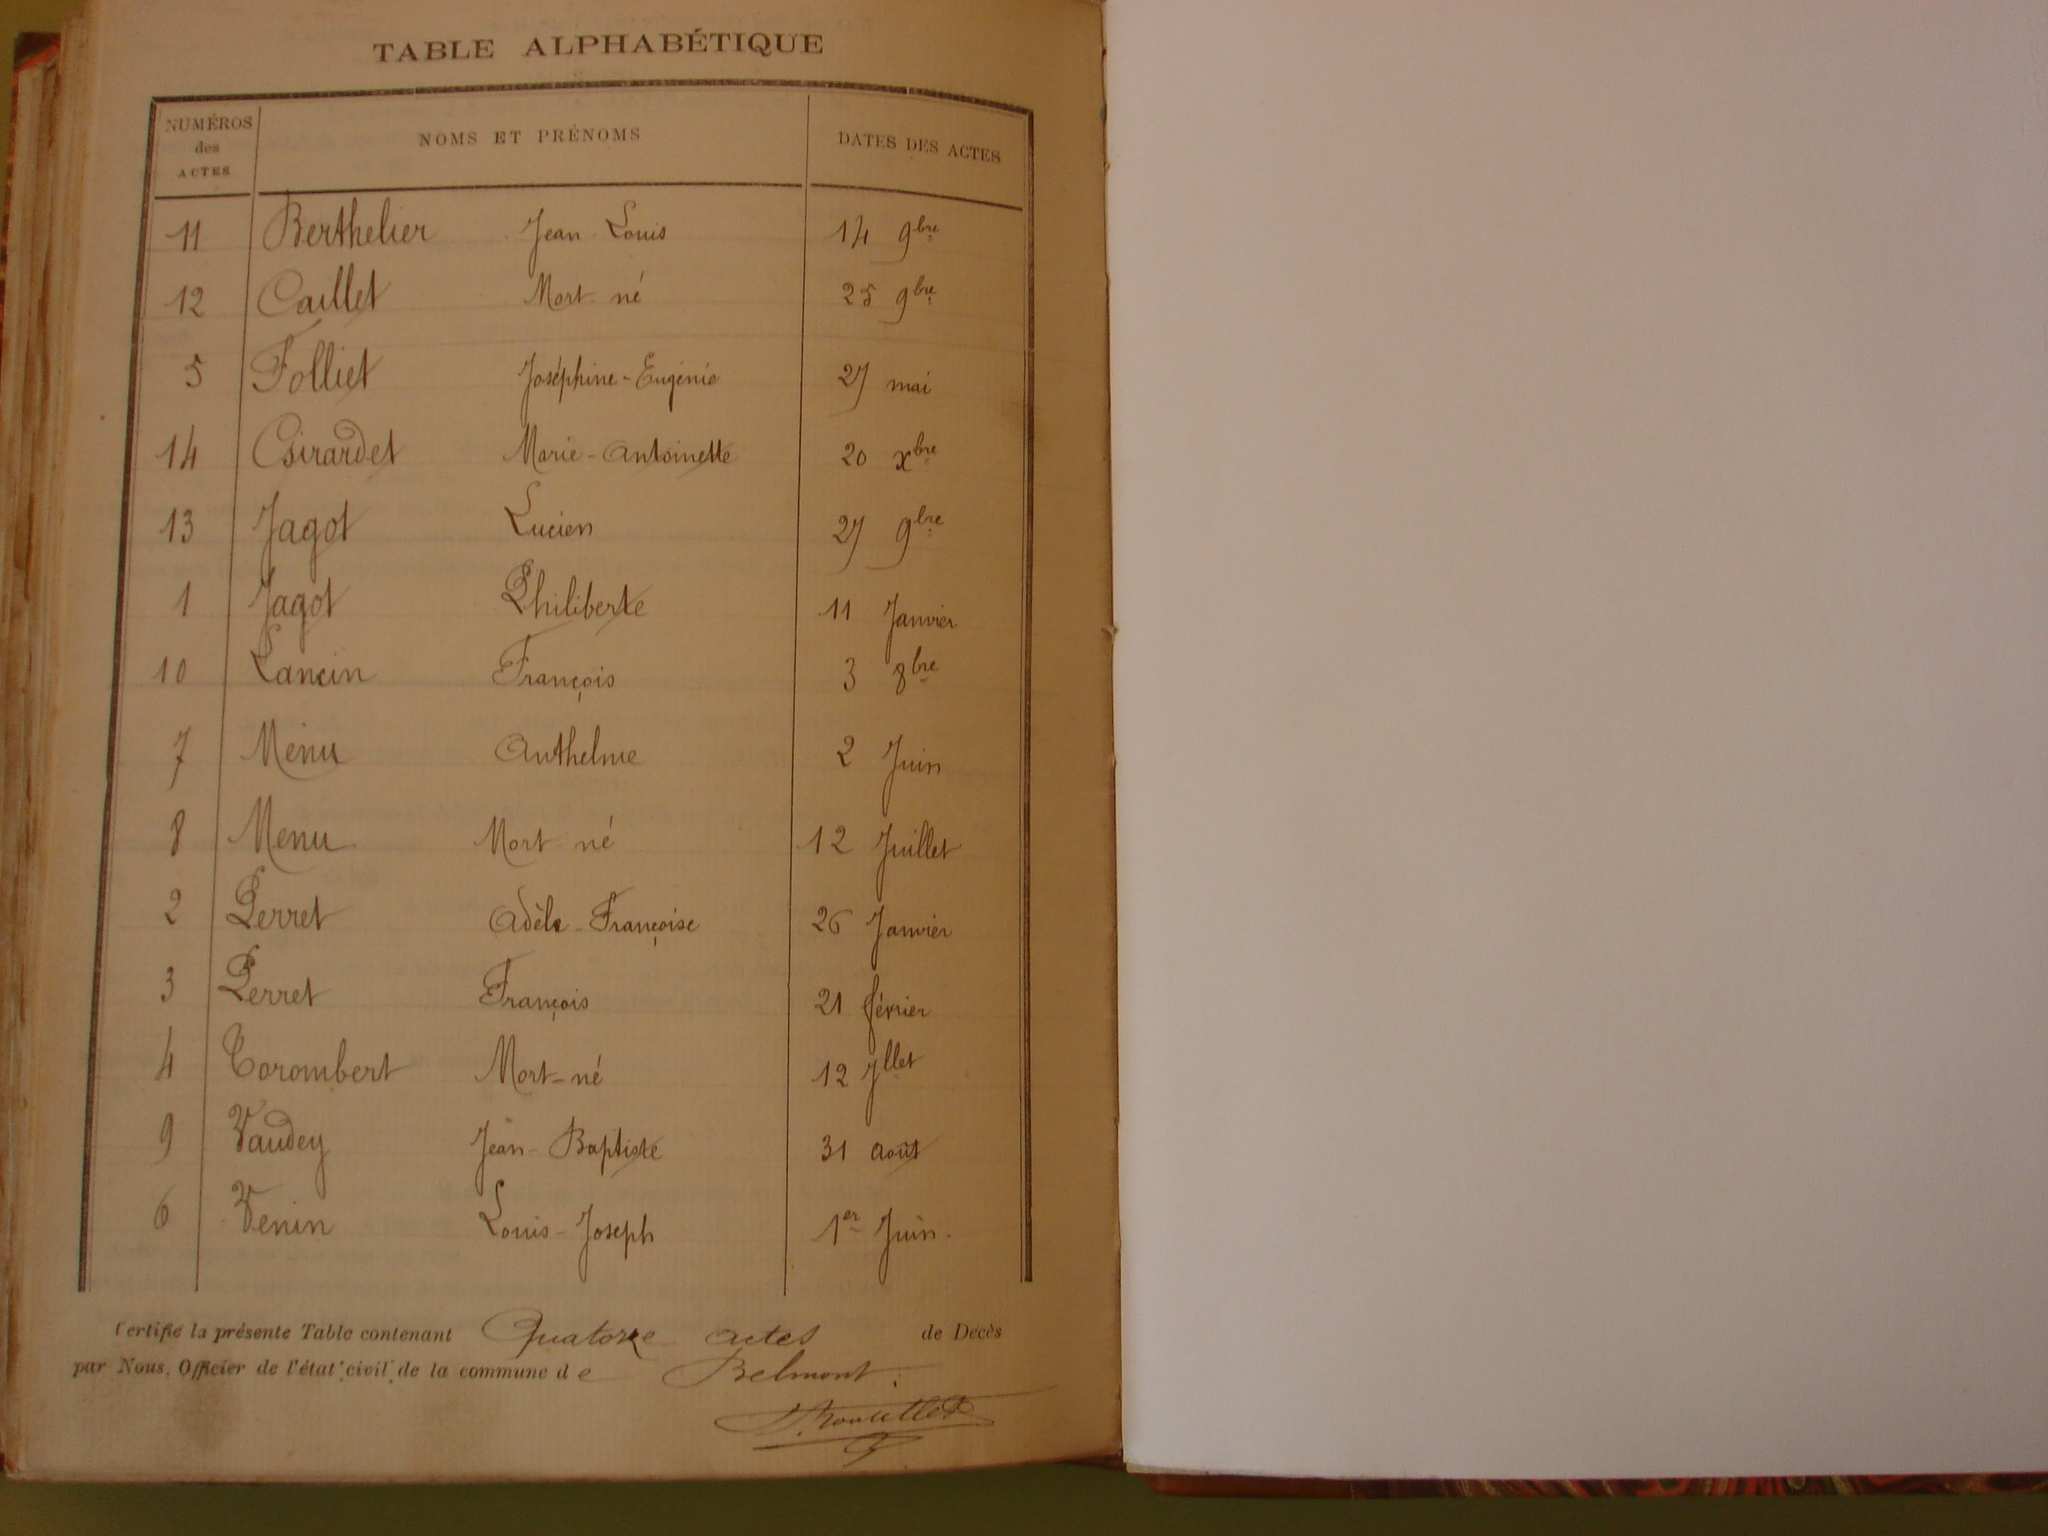 TABLE ALPHABÉTIQUE
NUMÉROS des ACTES NOMS ET PRÉNOMS DATES DES ACTES
11 Berthelier Jean-Louis 14 9bre
12 Caillet Mort-né 25 9bre
5 Folliet Joséphine-Eugénie 27 mai
14 Girardet Marie-Antoinette 20 xbre
13 Jagot Lucien 27 9bre
1 Jagot Philiberte 11 Janvier
10 Lancin François 3 8bre
7 Menu Anthelme 2 Juin
8 Menu Mort-né 12 Juillet
2 Perret Adèle-Françoise 26 Janvier
3 Perret François 21 février
4 Corombert Mort-né 12 Jllet
9 Vaudey Jean-Baptiste 31 août
6 Venin Louis-Joseph 1er Juin.
Certifié la présente Table contenant Quatorze actes de Décès
par Nous, Officier de l'état civil de la commune de Belmont.